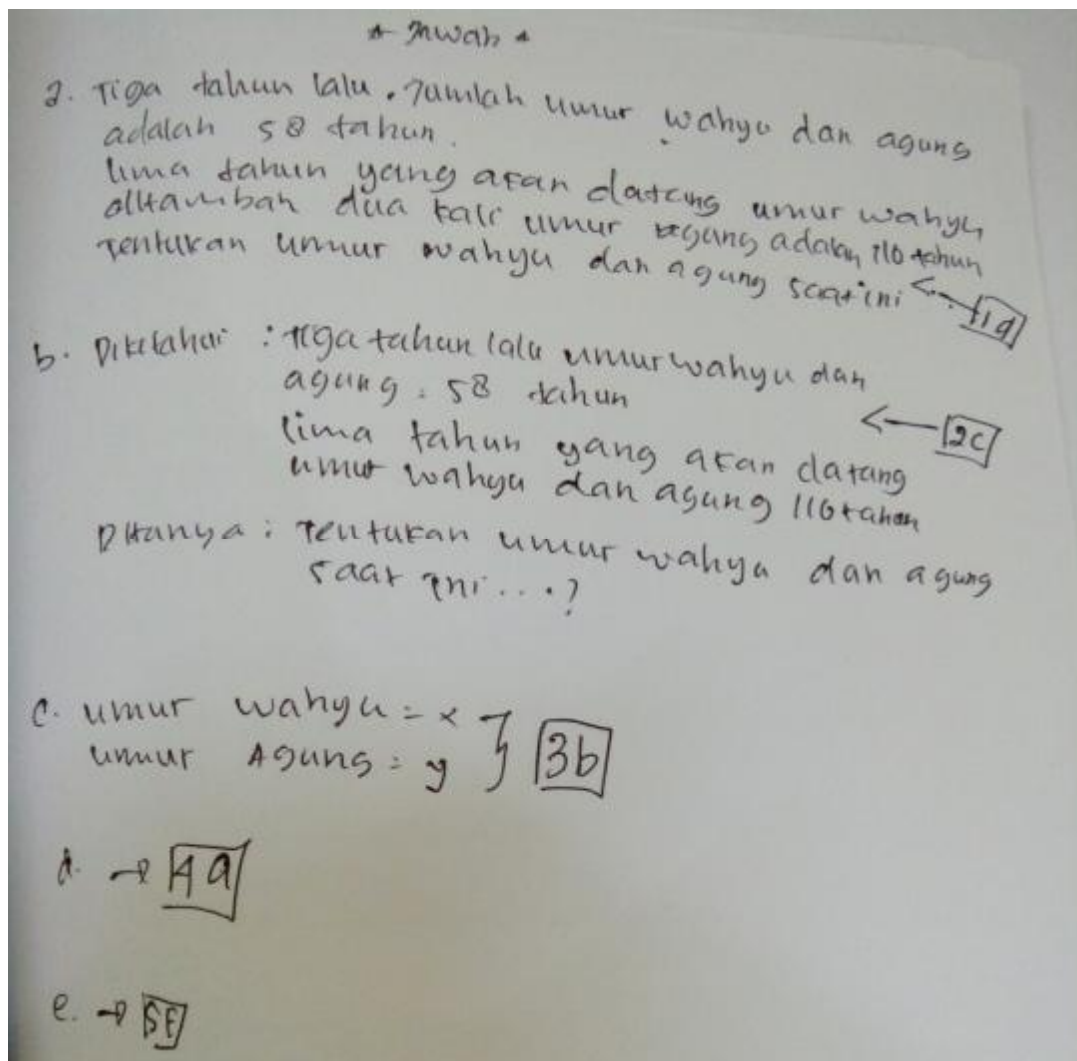 * Jawab *
a. Tiga tahun lalu. Jumlah umur wahyu dan agung
adalah 58 tahun.
lima tahun yang akan datang umur wahyu
ditambah dua kali umur agung adalah 110 tahun
Tentukan umur wahyu dan agung saat ini
b. Diketahui : tiga tahun lalu umur wahyu dan
agung : 58 tahun
2c
lima tahun yang akan datang
umur wahyu dan agung 110 tahun
Ditanya : Tentukan umur wahyu dan agung
saat ini...?
c. umur wahyu = x
umur Agung = y } 3b
d. →
e. →